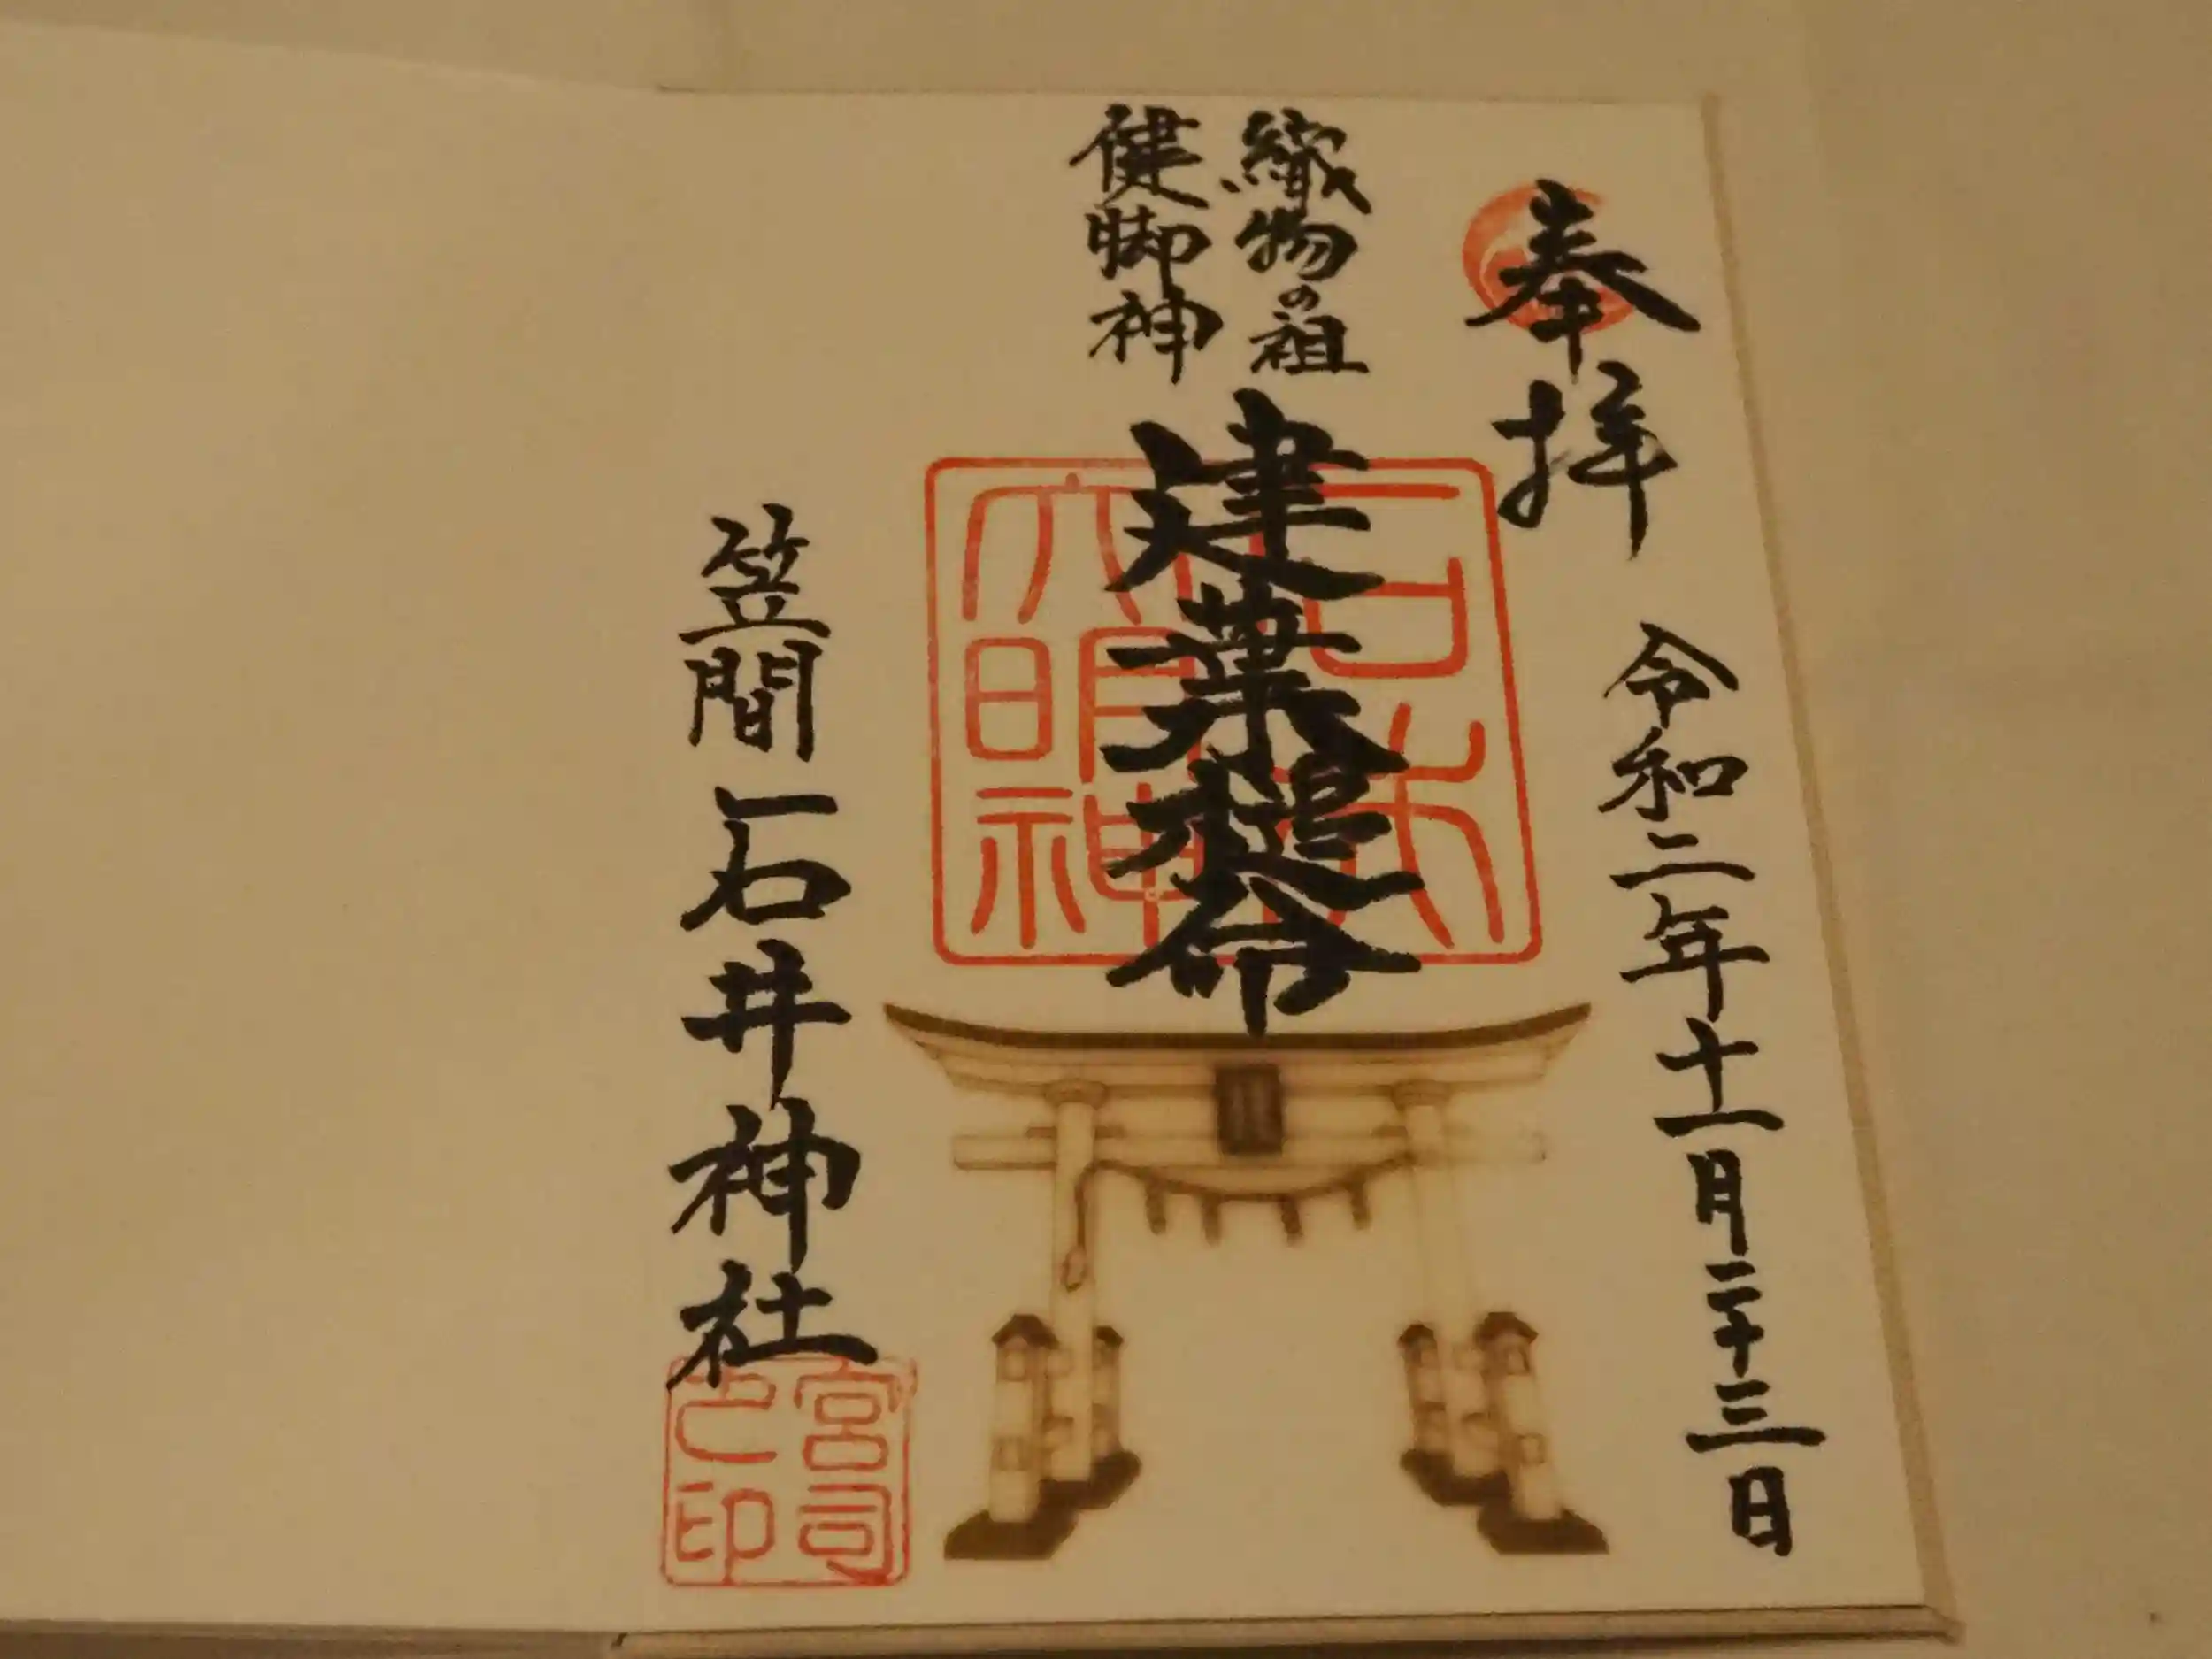 奉拝
令和二年十一月二十三日
織物の祖
健脚神
建葉槌命
笠間 石井神社
宮司之印